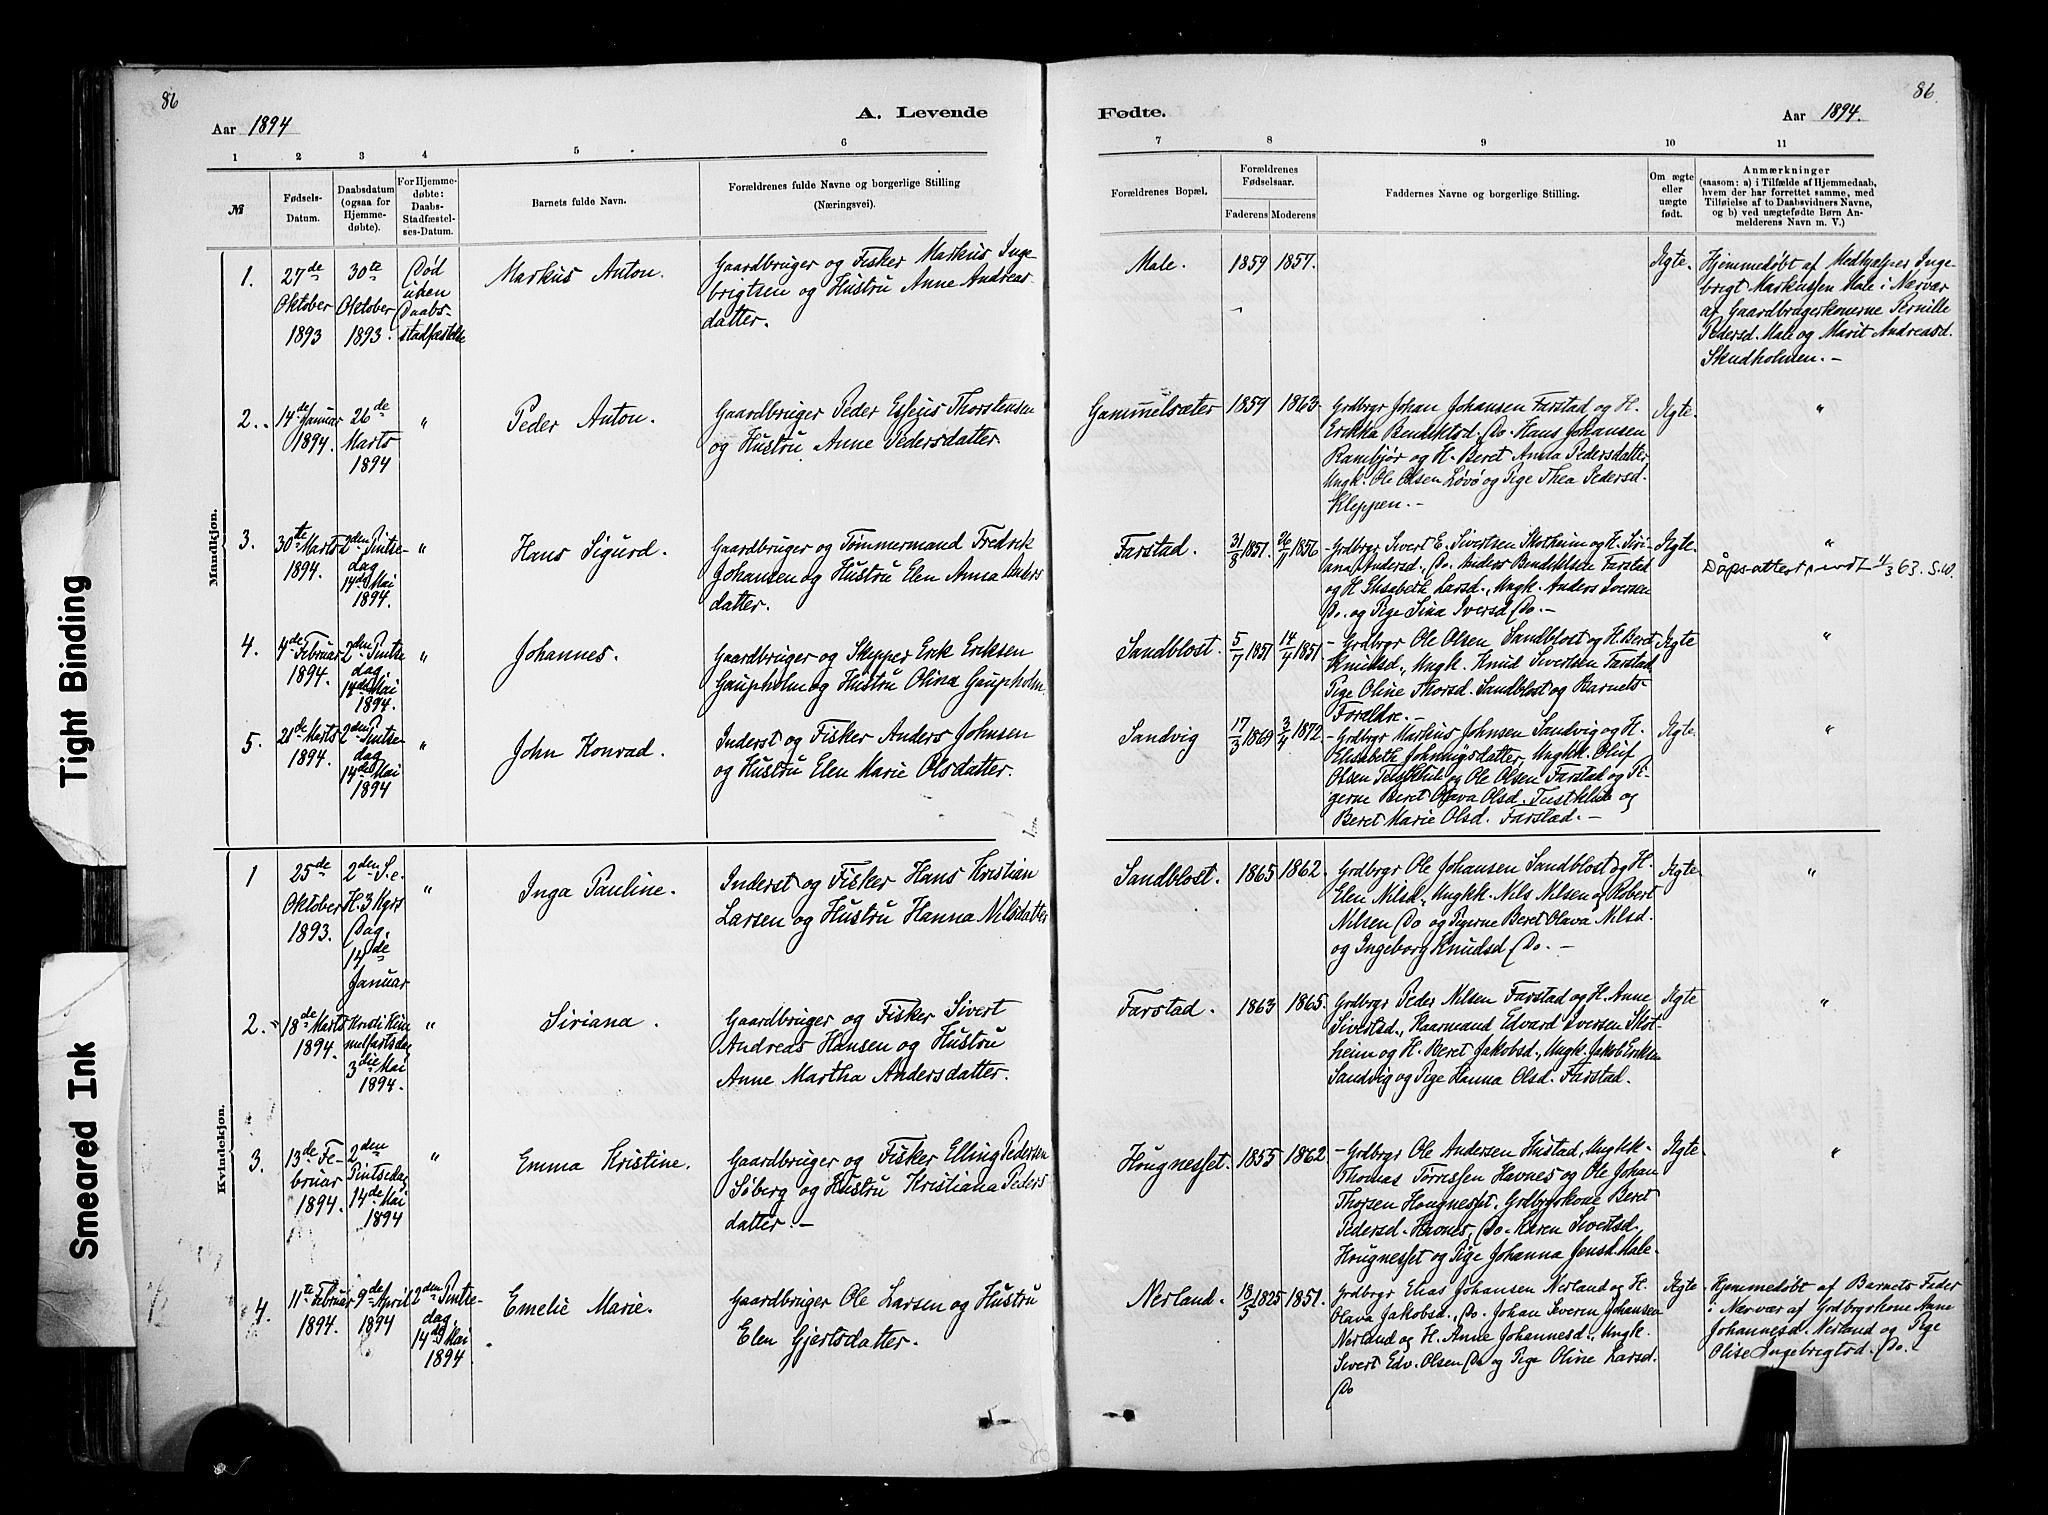 86
Aar 1894
A. Levende
1 2 3 4 5 6
№
Fødsels-
Datum.
Daabsdatum
(ogsaa for
Hjemme-
døbte).
For Hjemme-
døbte:
Daabs-
Stadfæstel-
ses-Datum.
Barnets fulde Navn.
Forældrenes fulde Navne og borgerlige Stilling
(Næringsvei).
Mandkjøn.
1.
27de
Oktober
1893
30te
Oktober
1893.
Død
uden
Daabs-
stadfæstelse
Markus Anton.
Gaardbruger og Fisker Markus Inge-
brigtsen og Hustru Anne Andreas-
datter.
2.
14de Januar
1894.
26de
Marts
1894
"
Peder Anton.
Gaardbruger Peder Esseus Thorstensen
og Hustru Anne Pedersdatter
3.
30te Marts
1894.
2den Pintse-
dag
14de Mai
1894.
"
Hans Sigurd.
Gaardbruger og Tømmermand Fredrik
Johansen og Hustru Elen Anna Anders
datter.
4.
4de Februar
1894.
2den Pintse
dag
14de Mai
1894.
"
Johannes.
Gaardbruger og Skipper Erik Eriksen
Gaupholm og Hustru Olina Gaupholm.
5.
21de Marts
1894.
2den Pintse-
dag
14de Mai
1894
"
John Konrad.
Inderst og Fisker Anders Johnsen
og Hustru Elen Marie Olsdatter.
Kvindekjøn.
1
25de
Oktober
1893.
2den S. e.
H. 3 Kgrs
Dag.
14de
Januar
"
Inga Pauline.
Inderst og Fisker Hans Kristian
Larsen og Hustru Hanna Nilsdatter
2.
18de Marts
1894.
Kristi Him
melfartsdag
3die Mai
1894.
"
Siriana.
Gaardbruger og Fisker Sivert
Andreas Hansen og Hustru
Anne Martha Andersdatter.
3.
13de Fe-
bruar
1894.
2den
Pintsedag
14de Mai
1894
"
Emma Kristine.
Gaardbruger og Fisker Elling Pedersen
Søberg og Hustru Kristiana Peders
datter. —
4.
11te Februar
1894.
9de April
1894
2den Pintse-
dag.
14de Mai
1894
Emelie Marie.
Gaardbruger Ole Larsen og Hustru
Elen Gjertsdatter.
86.
Fødte.
Aar 1894.
7 8 9 10 11
Forældrenes Bopæl.
Forældrenes
Fødselsaar.
Faderens Moderens
Faddernes Navne og borgerlige Stilling.
Om ægte
eller
uægte
født.
Anmærkninger
(saasom: a) i Tilfælde af Hjemmedaab,
hvem der har forrettet samme, med
Tilføielse af to Daabsvidners Navne,
og b) ved uægtefødte Børn An-
melderens Navn m. V.)
Male.
1859 1857.
Ægte.
Hjemmedøbt af Medhjælper Inge
brigt Markussen Male i Nærvær
af Gaardbrugerkonerne Pernille
Pedersd. Male og Marit Andreasd.
Skudholmen. —
Gammelsæter
1859 1863
Grdbrgr Johan Johansen Farstad og H.
Erikka Bendiktsd. Do. Hans Johansen
Rambjør og H. Beret Anna Pedersdatter
Ungk. Ole Olsen Løvø og Pige Thea Pedersd.
Kleppen. —
Ægte.
"
Farstad.
31/8 1857. 26/11 1856
— Grdbrgr Sivert E. Sivertsen Skotheim og H. Siri-
ana Andersd., Do. Anders Bendiktsen Farstad
og H. Elisabeth Larsd., Ungk. Anders Iversen
Do. og Pige Sina Iversd. Do. —
Ægte.
"
Dåpsattest 1/3 63. S.W.
Sandblost.
5/7 1851 14/4 1851
— Grdbrgr Ole Olsen Sandblost og H. Beret
Knudsd., Ungk. Knud Sivertsen Farstad,
Pige Oline Thorsd. Sandblost og Barnets
Forældre. —
Ægte
"
Sandvig
17/3 1869 3/4 1872
— Grdbrgr Markus Johnsen Sandvig og H.
Elisabeth Johnnysdatter, Ungkk. Oluf
Olsen Tustklub og Ole Olsen Farstad og Pi-
gerne Beret Olava Olsd. Tustklub og
Beret Marie Olsd. Farstad. —
Ægte.
"
Sandblost.
1865 1862
Grdbrgr Ole Johansen Sandblost og H.
Elen Nilsd., Ungkk. Nils Nilsen og Robert
Nilsen Do og Pigerne Beret Olava Nilsd.
og Ingeborg Knudsd. Do. —
Ægte.
"
Farstad.
1863 1865.
Grdbrgr Peder Nilsen Farstad og H. Anne
Sivertsd., Kaarmand Edvard Iversen Skot-
heim og H. Beret Jakobsd., Ungk. Jakob Eriksen
Sandvig og Pige Hanna Olsd. Farstad.
Ægte
"
Hougnesset.
1855 1862
— Grdbrgr Ole Andersen Hustad, Ungkk.
Thomas Tørressen Havnes og Ole Johan
Thorsen Hougnesset, Grdbrgrkone Beret
Pedersd. Havnes, Do. Karen Sivertsd.
Hougnesset og Pige Johanna Jensd. Male.
Ægte.
"
Nerland.
18/5 1825 1851.
Grdbrgr Elias Johansen Nerland og H.
Olava Jakobsd., Do. Johan Severin Johansen
Nerland og H. Anne Johannesd., Ungk.
Sivert Edv. Olsen Do og Pige Oline Larsd.
Do
Ægte
Hjemmedøbt af Barnets Fader
i Nærvær af Grdbrgrkone Anne
Johannesd. Nerland og Pige
Olise Ingebrigtsd. Do.
Tight Binding
Smeared Ink